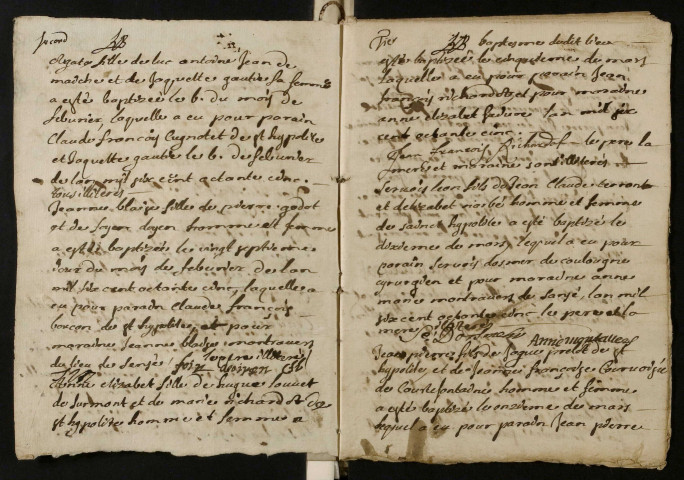 Agate fille de luc antoine Jean de
maiche et de Jaquette gautie sa femme
a esté baptizée le 6. du mois de
febvrier, laquelle a eu pour parain
Claude francois Cugnotet de st hypolite
et Jaquette gautie le 6. de febvrier
de lan mil six cent octante cinc.
tous illiteres
Jeanne blaise fille de pierre godot
et de doyen homme et femme
a esté baptizée le vingt septieme
Jour du mois de febvrier de lan
mil six cent octante cinc, laquelle a
eu pour parain Claude francois
de st hypolite, et pour
maraine Jeanne blaise montravers
du lieu de
elizabet fille de hugue
de surmont et de marie richardot de
st hypolite homme et femme a
baptesme dudit lieu
esté baptizée le cinquieme du mars
laquelle a eu pour parain Jean
francois richardot et pour maraine
anne elizabet lan mil six
cent octante cinc.
Jean francois Richardot le pere la
mere et maraine sont illiteres
Servois leon fils de Jean Claude
et delizabet homme et femme
de sainct hypolite a esté baptizé le
dixieme de mars, lequel a eu pour
parain servois de
cyrurgien et pour maraine anne
marie montravers de lan mil
six cent octante cinc le pere et la
mere illiteres
Jean pierre fils de Jaque de st
hypolite et de Jeanne francoise Courvoisie
de Courtefontaine homme et femme
a esté baptizé le onzieme de mars
lequel a eu pour parain Jean pierre